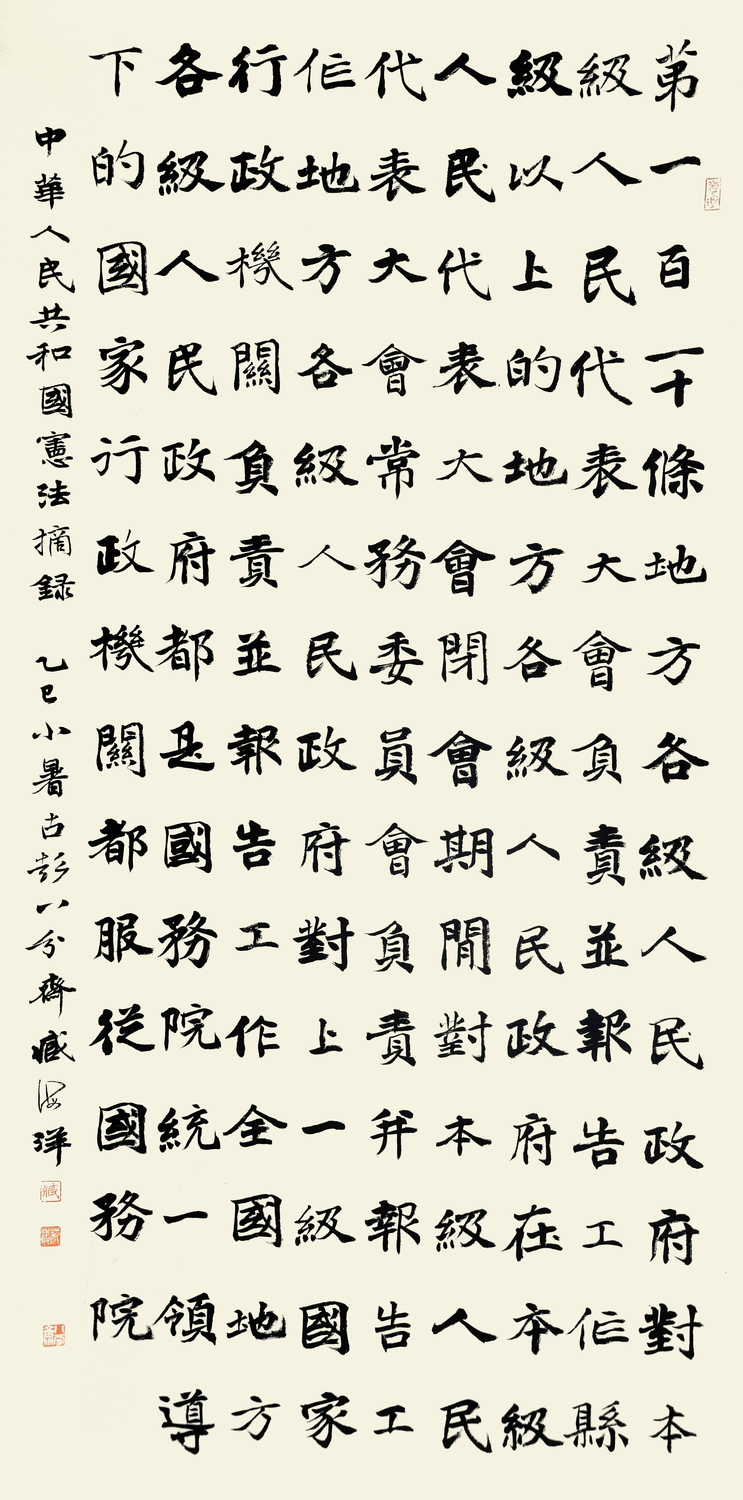 苐一百一十條地方各級人民政府對本
級人民代表大會負責並報告工作縣
級以上的地方各級人民政府在本級
人民代表大會閉會期閒對本級人民
代表大會常務委員會負責并報告工
作地方各級人民政府對上一級國家
行政機關負責並報告工作全國地方
各級人民政府都是國務院統一領導
下的國家行政機關都服從國務院
中華人民共和國憲法摘録 乙巳小暑古彭八分齋臧海洋